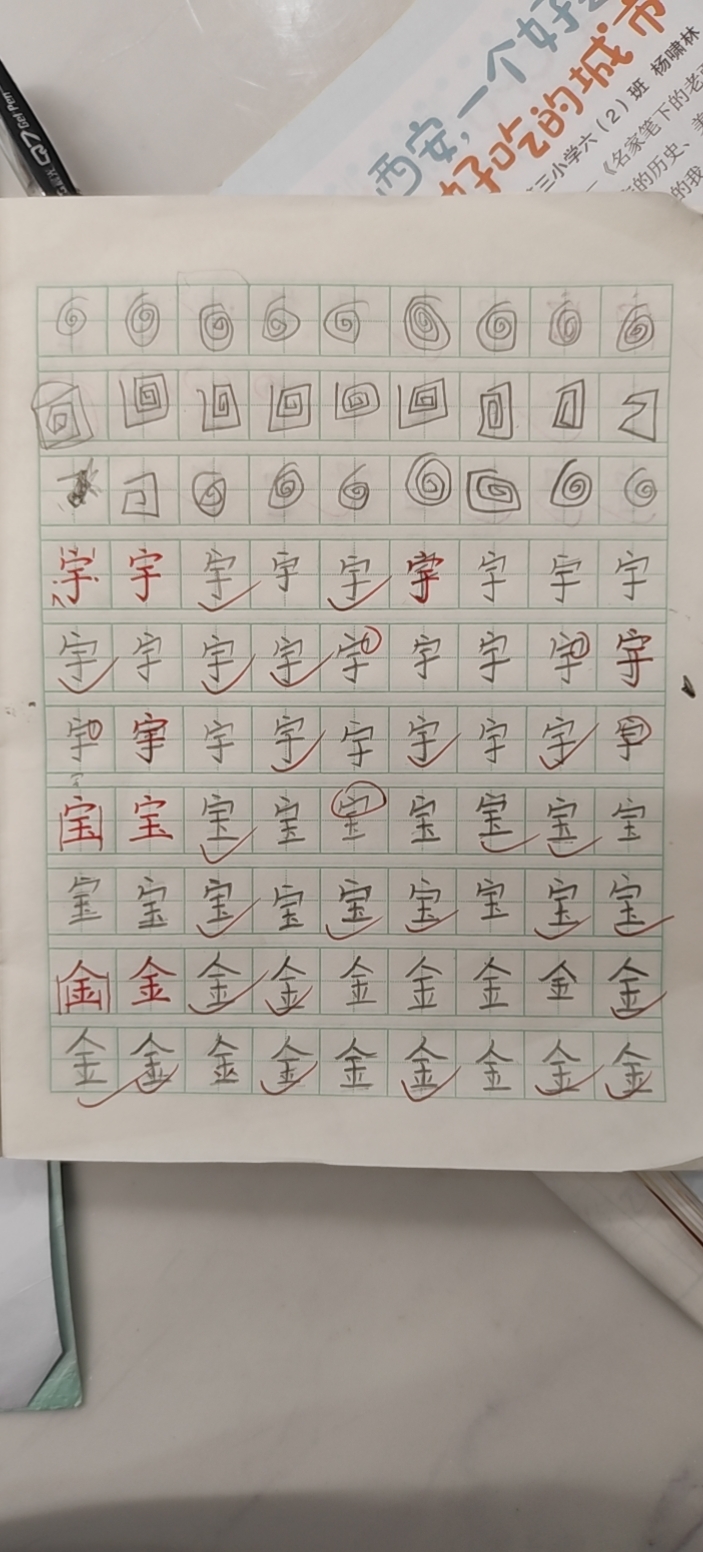 西安，一个好
好吃的城市
三小学六（2）班 杨啸林
《名家笔下的老
的历史、美
的我
Q7 Gel Pen
宇宇宇宇宇宇宇宇宇
宇宇宇宇宇宇宇宇宇
宇宇宇宇宇宇宇宇宇
宝宝宝宝宝宝宝宝宝
宝宝宝宝宝宝宝宝宝
金金金金金金金金金
金金金金金金金金金